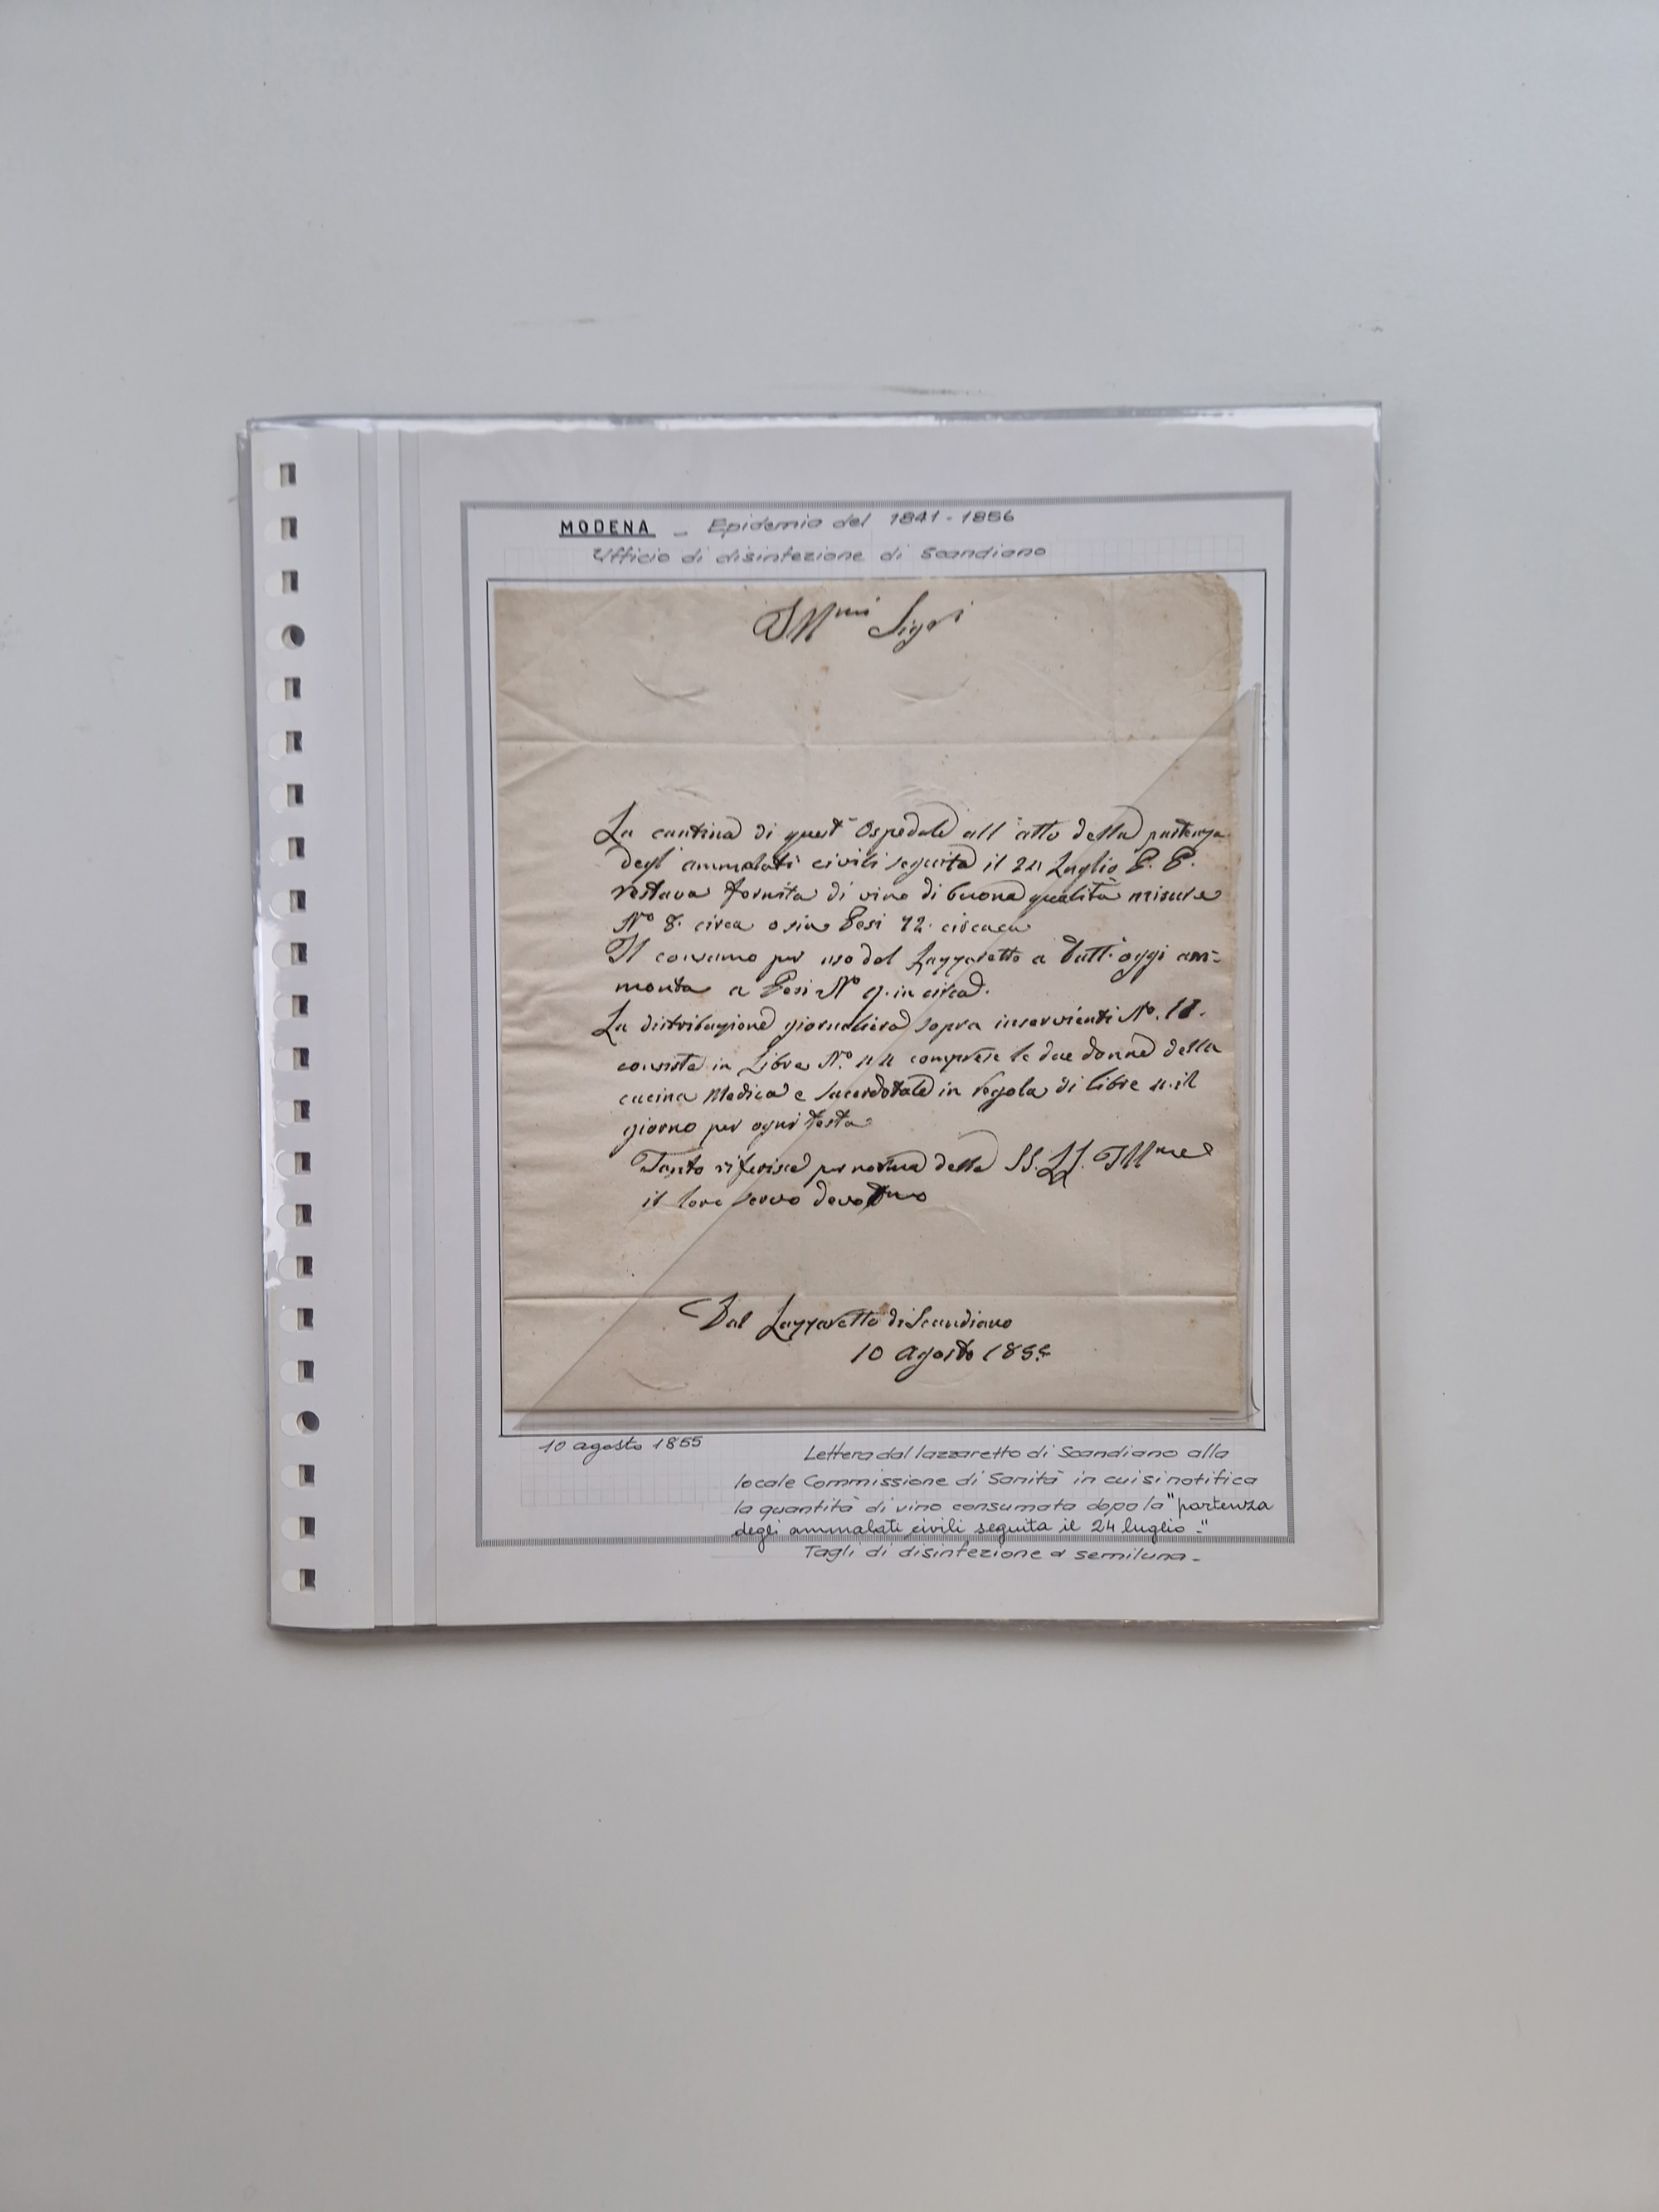 MODENA - Epidemia del 1841-1856
Ufficio di disinfezione di Scandiano
Illmi Sigri
La cantina di quest' Ospedale all'atto della partenza
degl' ammalati civili seguita il 24 Luglio
restava fornita di vino di buona qualità misure
No 8. circa o sia Pesi 72. circa
Il consumo per uso del Lazzaretto a tutt'oggi am=
monta a Pesi No 9. in circa.
La distribuzione giornaliera sopra inservienti No. 11.
consiste in Libre No. 44 comprese le due donne della
cucina Medica e Sacerdotale in regola di libre 4. il
giorno per ogni testa
Tanto riferisce per norma delle SS. LL. Illme
il loro servo devotmo
Dal Lazzaretto di Scandiano
10 Agosto 1855
10 agosto 1855
Lettera dal lazzaretto di Scandiano alla
locale Commissione di Sanità in cui si notifica
la quantità di vino consumata dopo la "partenza
degli ammalati civili seguita il 24 luglio -"
Tagli di disinfezione a semiluna -